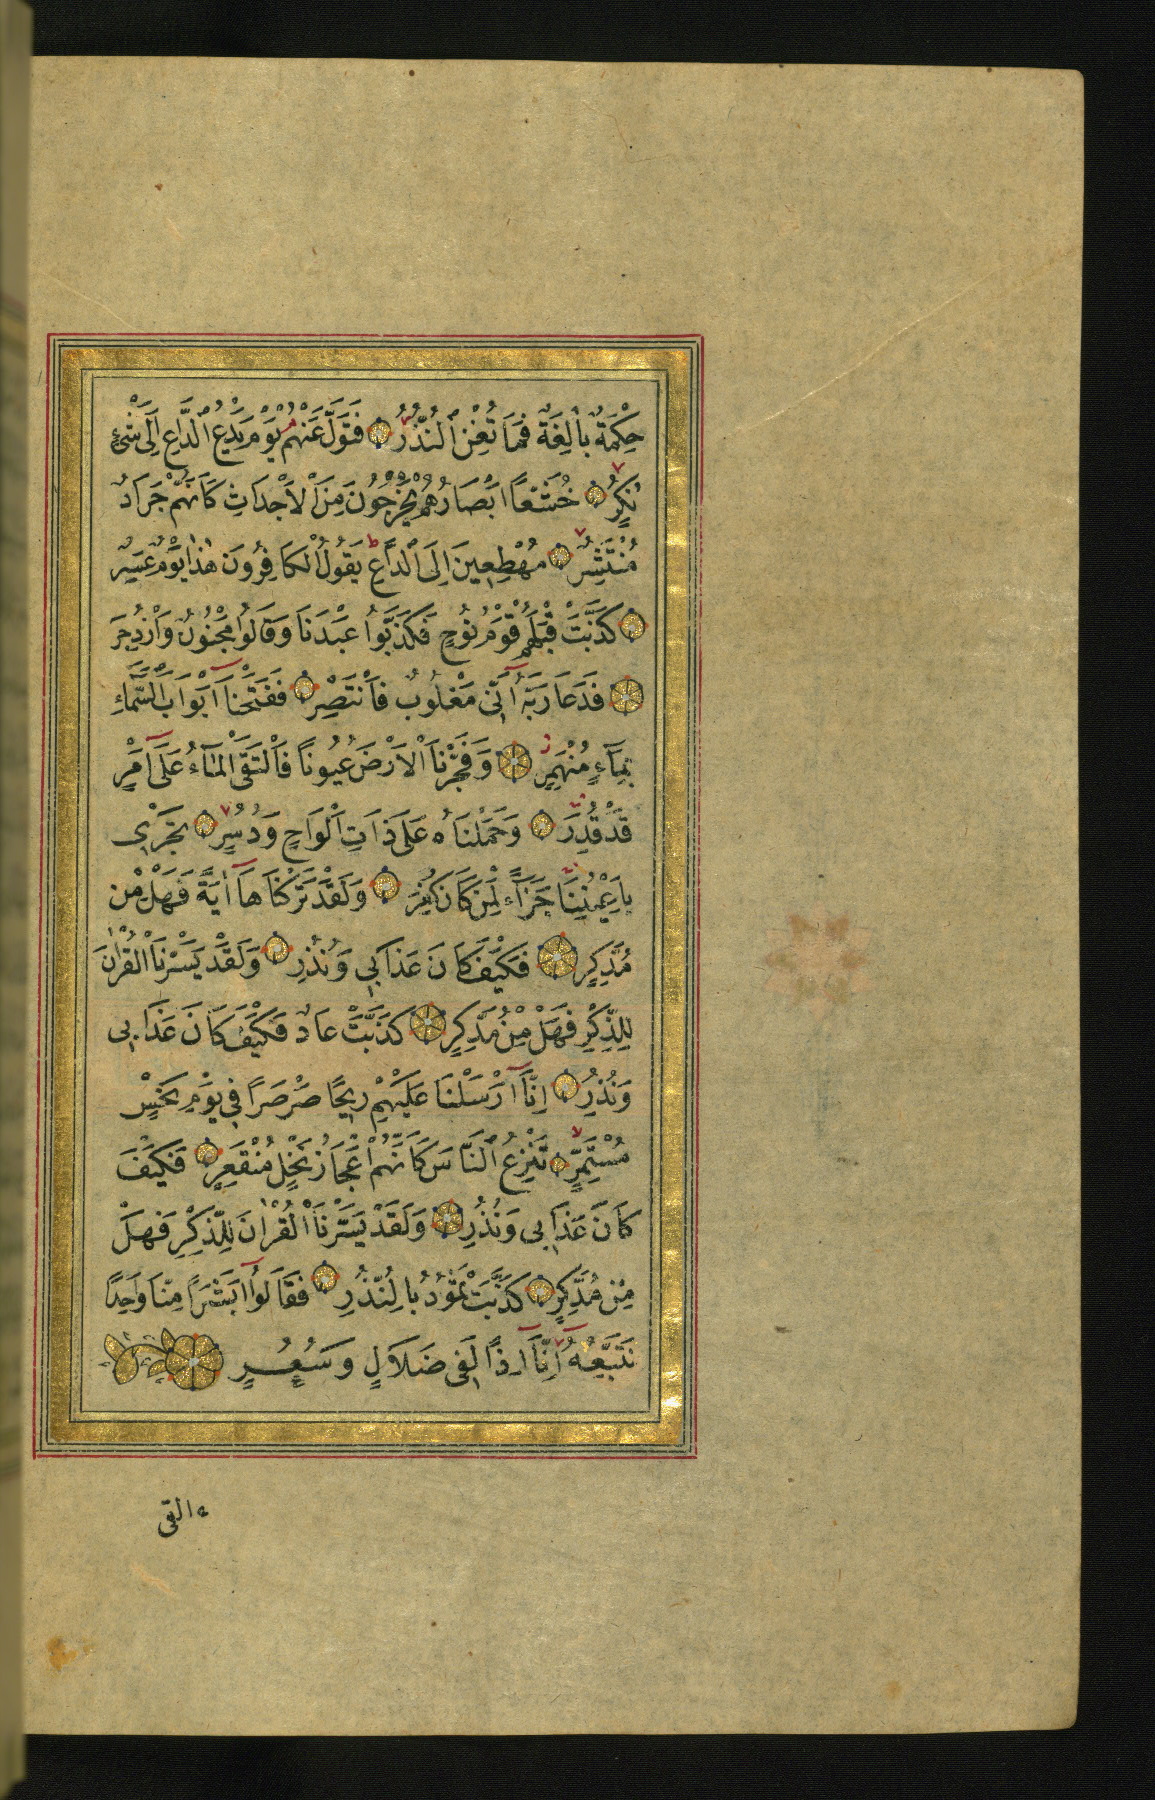 حِكْمَةٌ بَالِغَةٌ فَمَا تُغْنِ ٱلنُّذُرُ فَتَوَلَّ عَنْهُمْ يَوْمَ يَدْعُ ٱلدَّاعِ اِلَى شَىْءٍ
نُكُرٍ خُشَّعًا اَبْصَارُهُمْ يَخْرُجُونَ مِنَ ٱلْاَجْدَاثِ كَاَنَّهُمْ جَرَادٌ
مُنْتَشِرٌ مُهْطِعِينَ اِلَى ٱلدَّاعِ يَقُولُ ٱلْكَافِرُونَ هٰذَا يَوْمٌ عَسِرٌ
كَذَّبَتْ قَبْلَهُمْ قَوْمُ نُوحٍ فَكَذَّبُوا عَبْدَنَا وَقَالُوا مَجْنُونٌ وَازْدُجِرَ
فَدَعَا رَبَّهُ اَنِّى مَغْلُوبٌ فَانْتَصِرْ فَفَتَحْنَا اَبْوَابَ ٱلسَّمَاءِ
بِمَاءٍ مُنْهَمِرٍ وَفَجَّرْنَا ٱلْاَرْضَ عُيُونًا فَالْتَقَى ٱلْمَاءُ عَلَى اَمْرٍ
قَدْ قُدِرَ وَحَمَلْنَاهُ عَلَى ذَاتِ اَلْوَاحٍ وَدُسُرٍ تَجْرِى
بِاَعْيُنِنَا جَزَاءً لِمَنْ كَانَ كُفِرَ وَلَقَدْ تَرَكْنَاهَا اٰيَةً فَهَلْ مِنْ
مُدَّكِرٍ فَكَيْفَ كَانَ عَذَابِى وَنُذُرِ وَلَقَدْ يَسَّرْنَا ٱلْقُرْاٰنَ
لِلذِّكْرِ فَهَلْ مِنْ مُدَّكِرٍ كَذَّبَتْ عَادٌ فَكَيْفَ كَانَ عَذَابِى
وَنُذُرِ اِنَّا اَرْسَلْنَا عَلَيْهِمْ رِيحًا صَرْصَرًا فِى يَوْمِ نَحْسٍ
مُسْتَمِرٍّ تَنْزِعُ ٱلنَّاسَ كَاَنَّهُمْ اَعْجَازُ نَخْلٍ مُنْقَعِرٍ فَكَيْفَ
كَانَ عَذَابِى وَنُذُرِ وَلَقَدْ يَسَّرْنَا ٱلْقُرْاٰنَ لِلذِّكْرِ فَهَلْ
مِنْ مُدَّكِرٍ كَذَّبَتْ ثَمُودُ بِالنُّذُرِ فَقَالُوا اَبَشَرًا مِنَّا وَاحِدًا
نَتَّبِعُهُ اِنَّا اِذًا لَفِى ضَلَالٍ وَسُعُرٍ
ءالقى